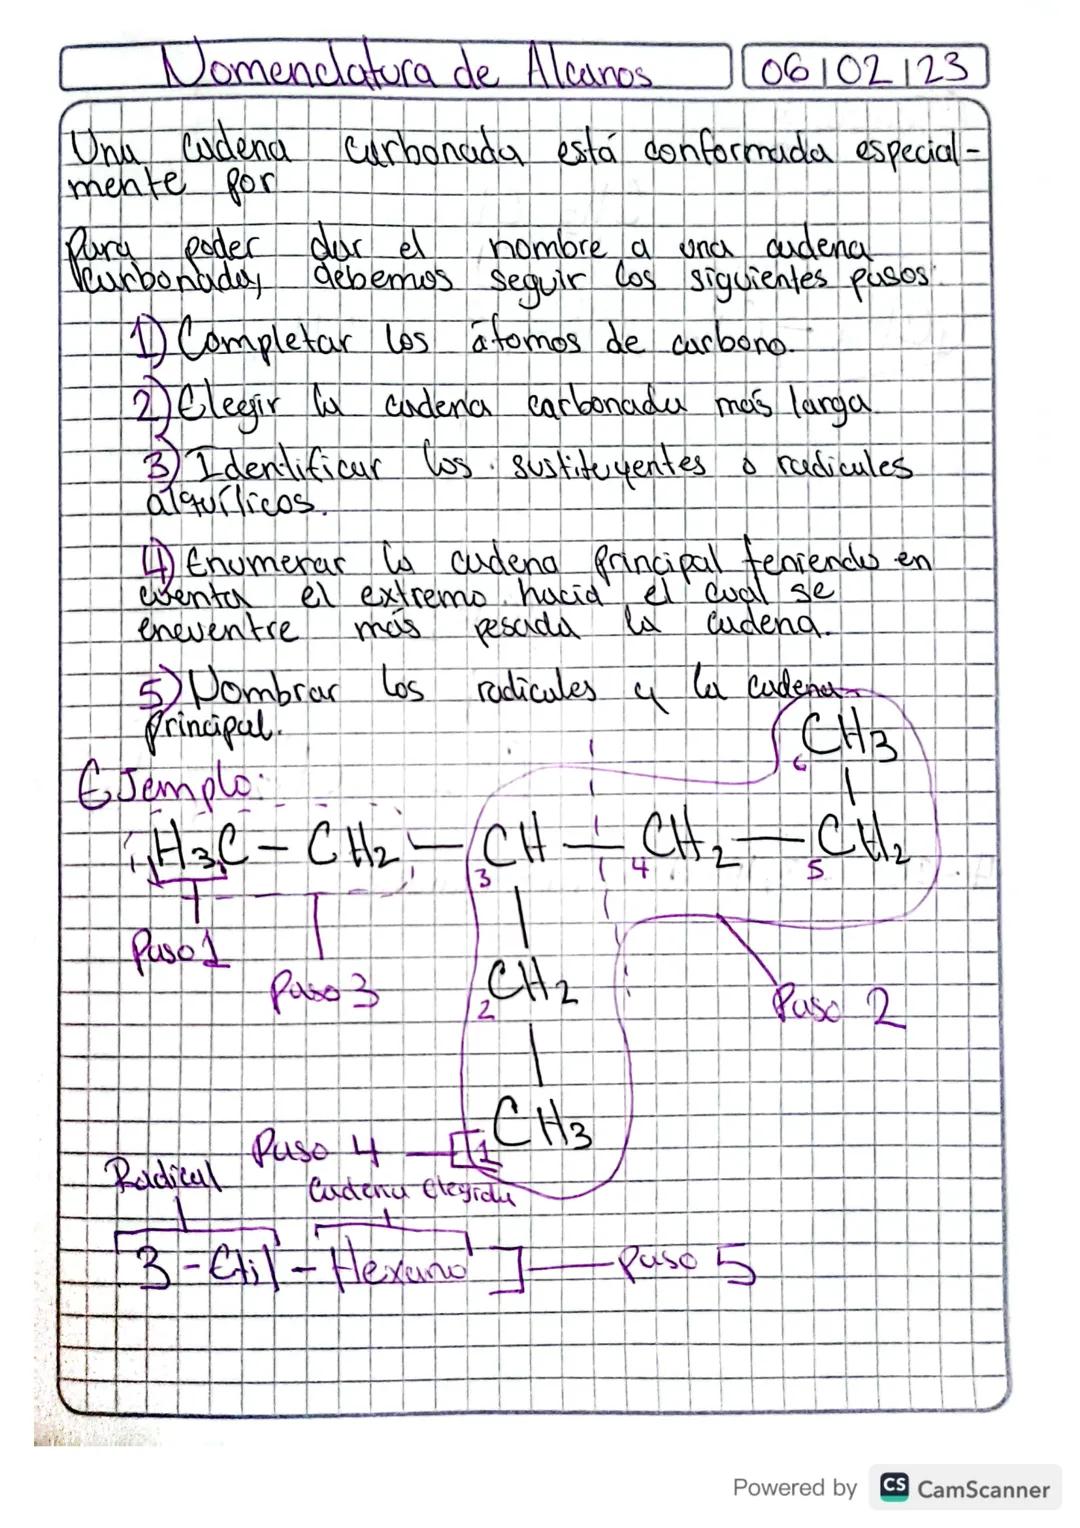 Nomenclatura de Alcanos
06|02|23
Una cadena carbonada está conformada especial-
mente por
Para poder dar el nombre a una cadena
carbonada, debemos seguir los siguientes pasos:
1) Completar los átomos de carbono.
2) Elegir la cadena carbonada más larga
3) Identificar los sustituyentes o radicales
alquílicos.
4) Enumerar la cadena principal teniendo en
cuenta el extremo hacia el cual se
encuentre más pesada la cadena.
5) Nombrar los radicales y la cadena
principal.
CH3
6
Ejemplo:
H3C - CH2 - CH - CH2 - CH2
3 4 5
Paso 1
Paso 3
CH2
2
Paso 2
CH3
Paso 4
1
Radical
Cadena elegida
3-Etil-Hexano
Paso 5
Powered by CS CamScanner